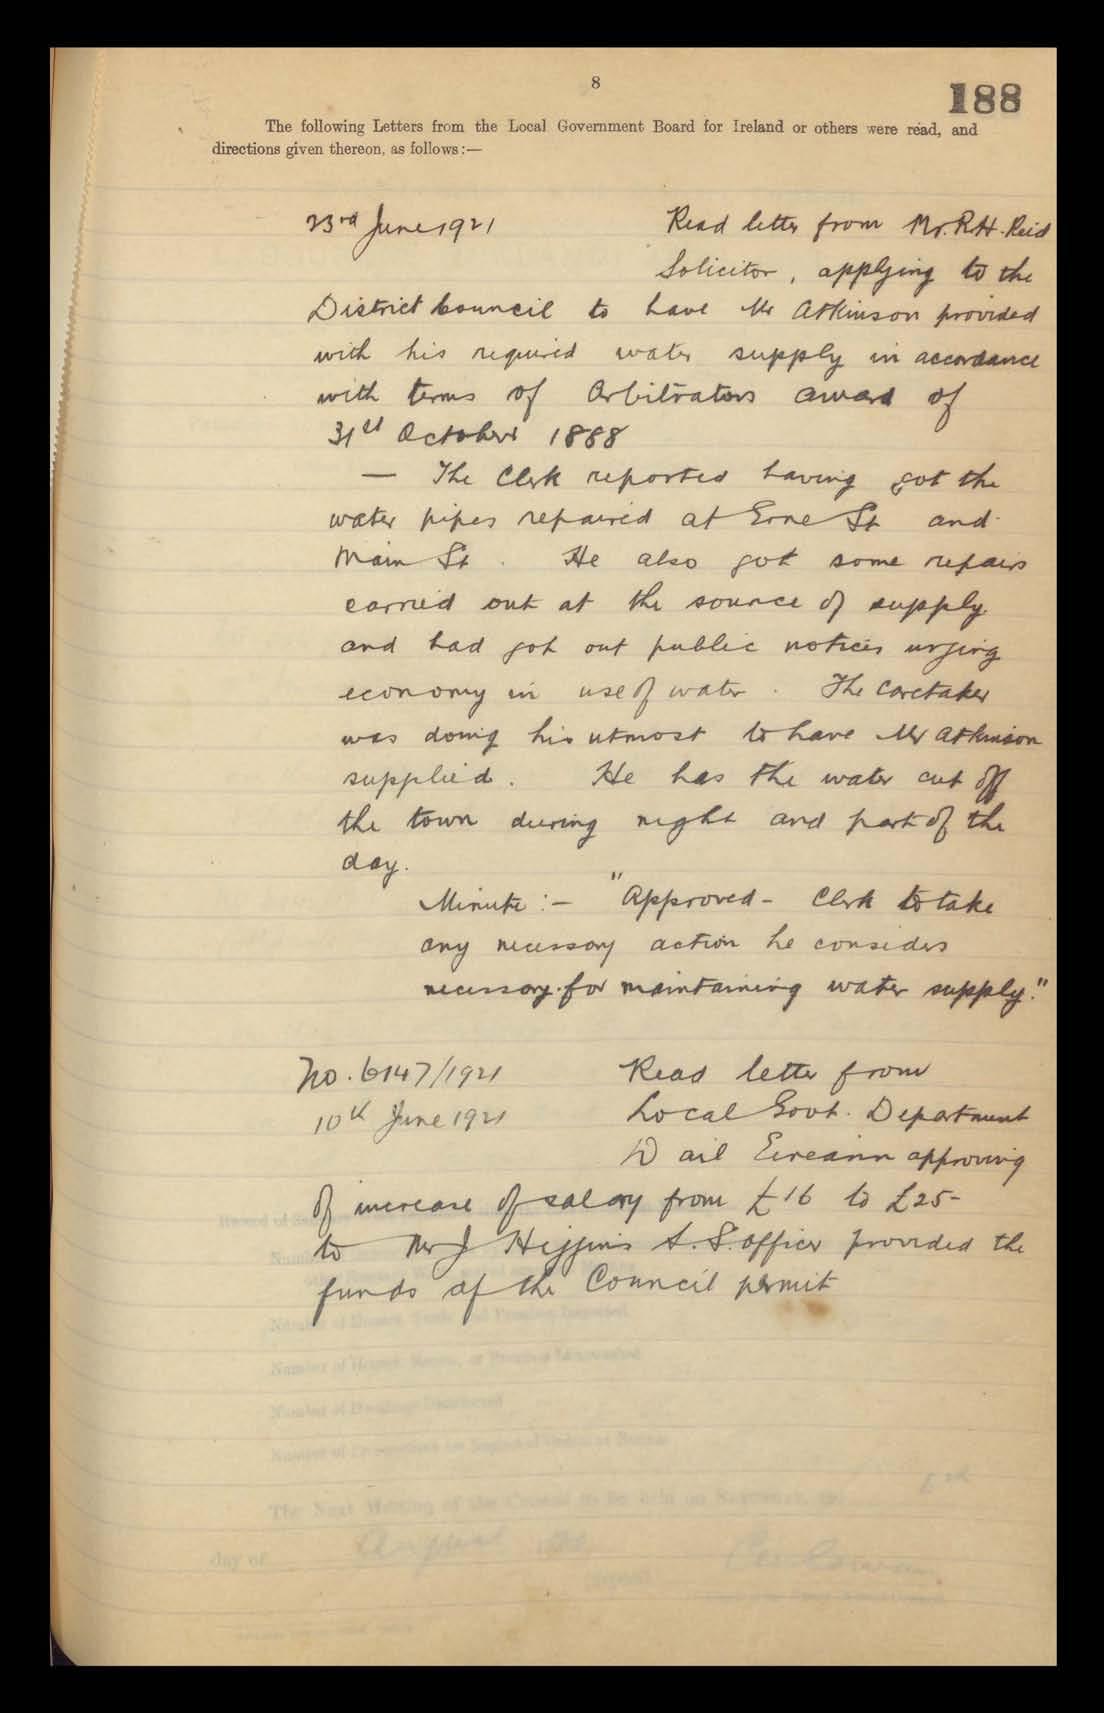 8
188
The following Letters from the Local Government Board for Ireland or others were read, and
directions given thereon, as follows:—
23rd June 1921 Read letter from Mr. R.H. Reid
Solicitor, applying to the
District Council to have Mr Atkinson provided
with his required water supply in accordance
with terms of Arbitrators award of
31st October 1888
— The Clerk reported having got the
water pipes repaired at Erne St and
Main St. He also got some repairs
carried out at the source of supply
and had got out public notices urging
economy in use of water. The Caretaker
was doing his utmost to have Mr Atkinson
supplied. He has the water cut off
the town during night and part of the
day.
Minute:— "Approved - Clerk to take
any necessary action he considers
necessary for maintaining water supply."
No. 6147/1921 Read letter from
10th June 1921 Local Govt. Department
Dail Eireann approving
of increase of salary from £16 to £25-
to Mr J Higgins S.S. officer provided the
funds of the Council permit
The Next Meeting of the Council to be held on
day of August